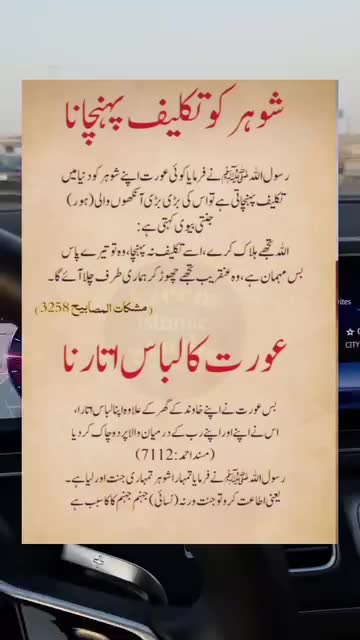 شوہر کو تکلیف پہنچانا
رسول اللہ ﷺ نے فرمایا کوئی عورت اپنے شوہر کو دنیا میں
تکلیف پہنچاتی ہے تو اس کی بڑی بڑی آنکھوں والی (حور)
جنتی بیوی کہتی ہے:
اللہ تجھے ہلاک کرے، اسے تکلیف نہ پہنچا، وہ تو تیرے پاس
بس مہمان ہے، وہ عنقریب تجھے چھوڑ کر ہماری طرف چلا آئے گا۔
(مشکات المصابیح 3258)
عورت کا لباس اتارنا
جس عورت نے اپنے خاوند کے گھر کے علاوہ اپنا لباس اتارا،
اس نے اپنے اور اپنے رب کے درمیان والا پردہ چاک کر دیا
(مسند احمد: 7112)
رسول اللہ ﷺ نے فرمایا تمہارا شوہر تمہاری جنت اور لیا ہے۔
یعنی اطاعت کرو تو جنت ورنہ (نسائی) جہنم جہنم کا کا سبب ہے
rites
CITY